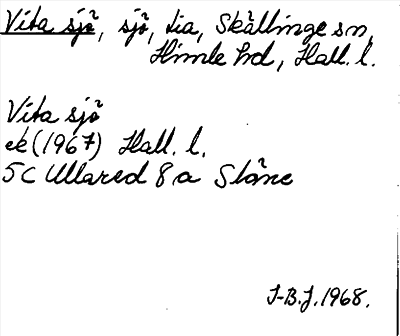 Vita sjö, sjö, tia, Skällinge sn,
Himle hd, Hall. l.
Vita sjö
ek (1967) Hall. l.
5C Ullared 8a Släne
J-B.J. 1968.